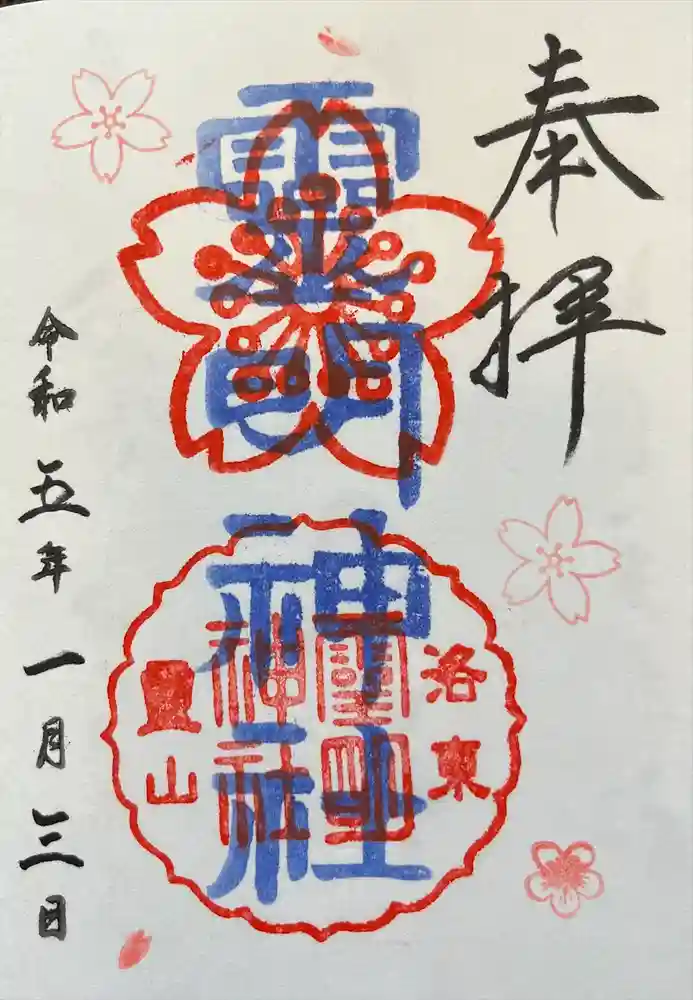 奉拝
霊明神社
洛東
霊明神社
靈山
令和五年一月三日